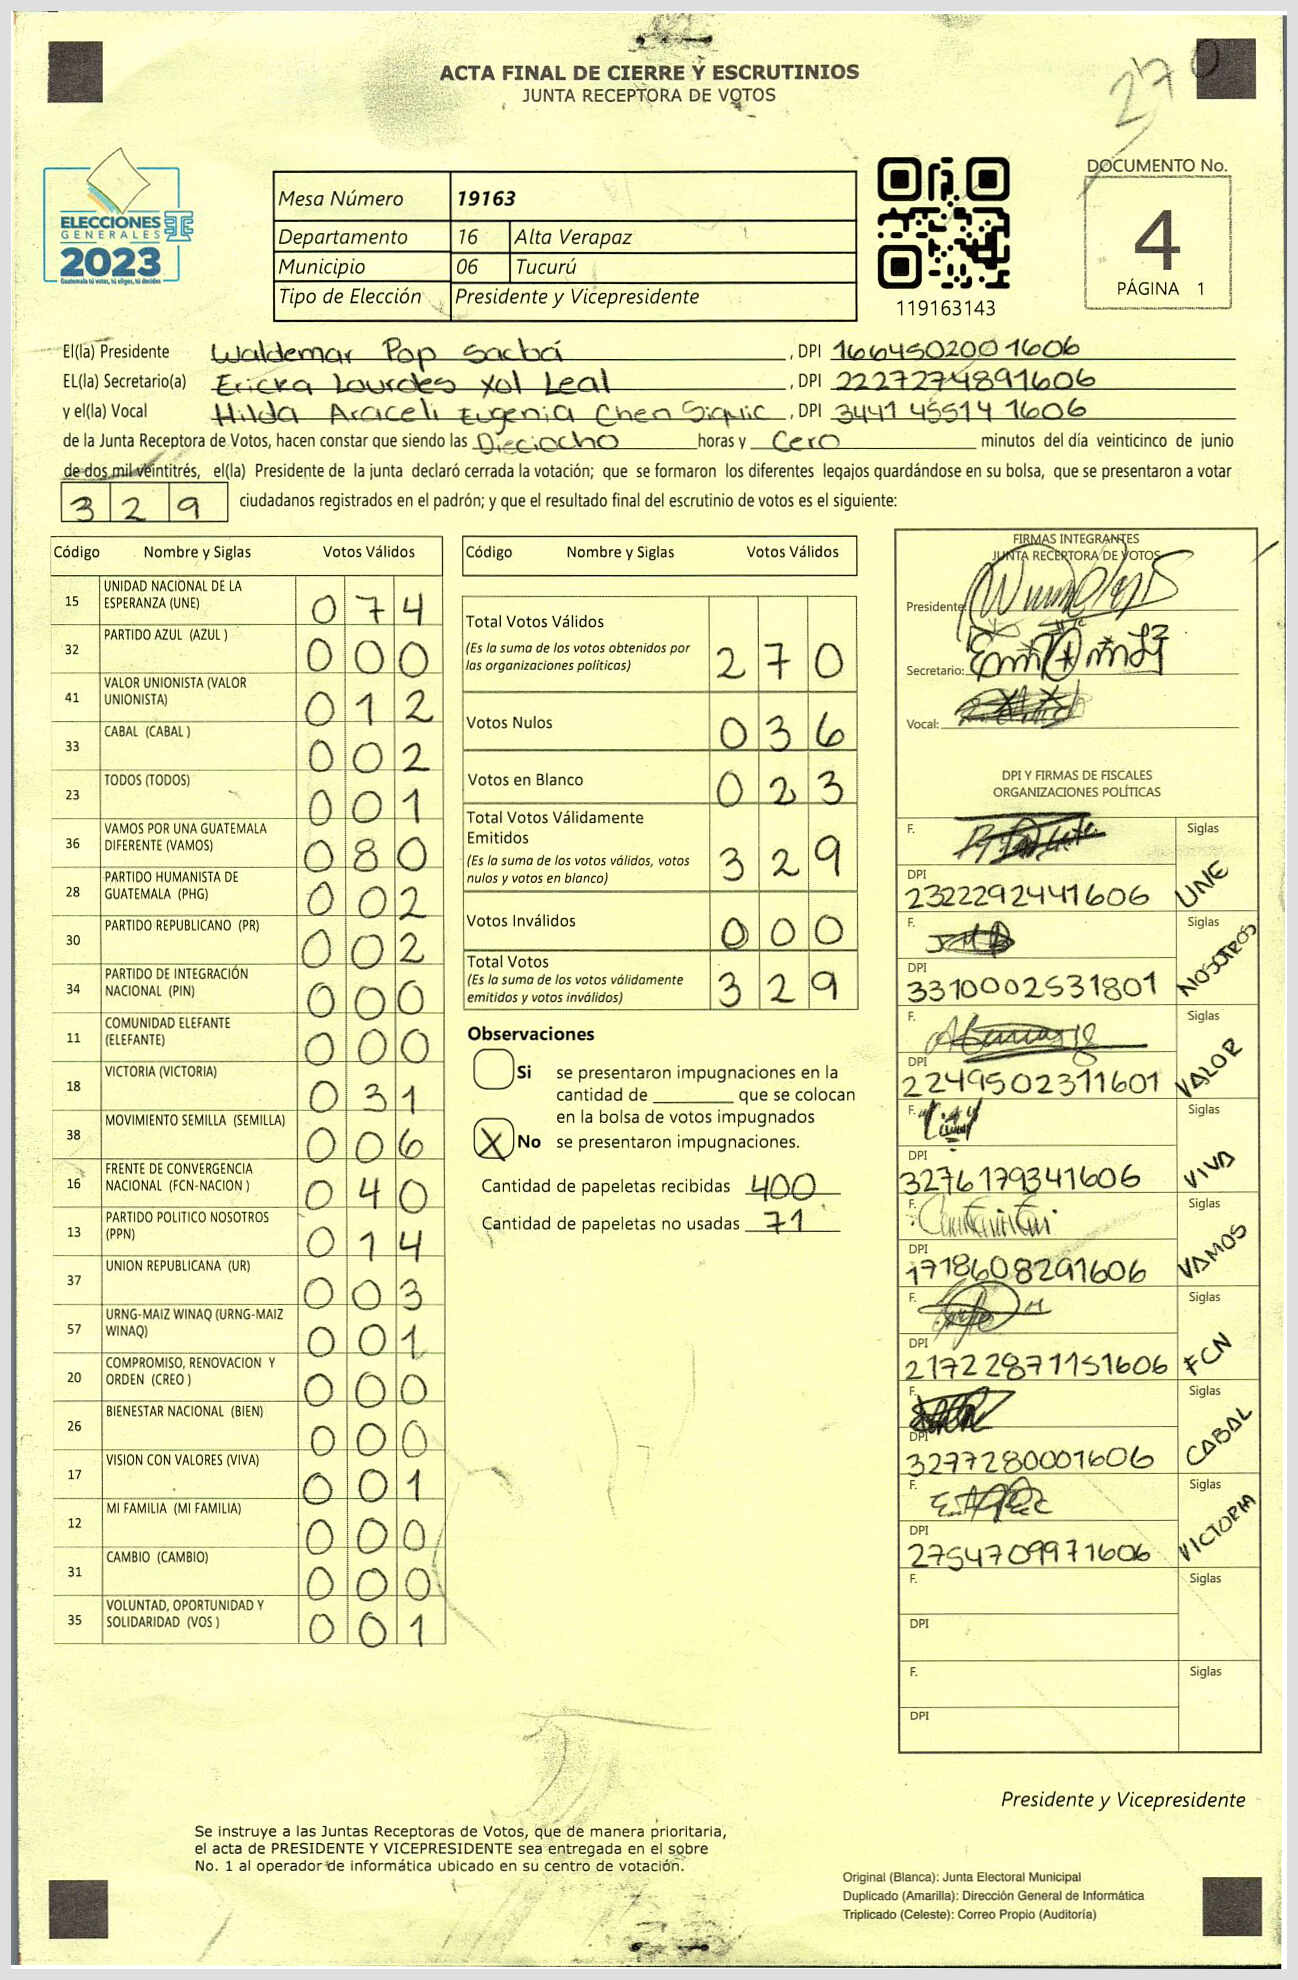 270
ACTA FINAL DE CIERRE Y ESCRUTINIOS
JUNTA RECEPTORA DE VOTOS
ELECCIONES
GENERALES
2023
Guatemala tú votas, tú eliges, tú decides
Mesa Número 19163
Departamento 16 Alta Verapaz
Municipio 06 Tucurú
Tipo de Elección Presidente y Vicepresidente
119163143
DOCUMENTO No.
4
PÁGINA 1
El(la) Presidente Waldemar Pop Sacbá, DPI 1664502001606
EL(la) Secretario(a) Ericka Lourdes Xol Leal, DPI 2227274891606
y el(la) Vocal Hilda Araceli Eugenia Chen Siquic, DPI 3441 45514 1606
de la Junta Receptora de Votos, hacen constar que siendo las Dieciocho horas y Cero minutos del día veinticinco de junio
de dos mil veintitrés, el(la) Presidente de la junta declaró cerrada la votación; que se formaron los diferentes legajos guardándose en su bolsa, que se presentaron a votar
329 ciudadanos registrados en el padrón; y que el resultado final del escrutinio de votos es el siguiente:
Código Nombre y Siglas Votos Válidos
15 UNIDAD NACIONAL DE LA ESPERANZA (UNE) 074
32 PARTIDO AZUL (AZUL ) 000
41 VALOR UNIONISTA (VALOR UNIONISTA) 012
33 CABAL (CABAL ) 002
23 TODOS (TODOS) 001
36 VAMOS POR UNA GUATEMALA DIFERENTE (VAMOS) 080
28 PARTIDO HUMANISTA DE GUATEMALA (PHG) 002
30 PARTIDO REPUBLICANO (PR) 002
34 PARTIDO DE INTEGRACIÓN NACIONAL (PIN) 000
11 COMUNIDAD ELEFANTE (ELEFANTE) 000
18 VICTORIA (VICTORIA) 031
38 MOVIMIENTO SEMILLA (SEMILLA) 006
16 FRENTE DE CONVERGENCIA NACIONAL (FCN-NACION ) 040
13 PARTIDO POLITICO NOSOTROS (PPN) 014
37 UNION REPUBLICANA (UR) 003
57 URNG-MAIZ WINAQ (URNG-MAIZ WINAQ) 001
20 COMPROMISO, RENOVACION Y ORDEN (CREO ) 000
26 BIENESTAR NACIONAL (BIEN) 000
17 VISION CON VALORES (VIVA) 001
12 MI FAMILIA (MI FAMILIA) 000
31 CAMBIO (CAMBIO) 000
35 VOLUNTAD, OPORTUNIDAD Y SOLIDARIDAD (VOS ) 001
Código Nombre y Siglas Votos Válidos
Total Votos Válidos
(Es la suma de los votos obtenidos por las organizaciones políticas) 270
Votos Nulos 036
Votos en Blanco 023
Total Votos Válidamente Emitidos
(Es la suma de los votos válidos, votos nulos y votos en blanco) 329
Votos Inválidos 000
Total Votos
(Es la suma de los votos válidamente emitidos y votos inválidos) 329
Observaciones
Si se presentaron impugnaciones en la
cantidad de ________ que se colocan
en la bolsa de votos impugnados
X No se presentaron impugnaciones.
Cantidad de papeletas recibidas 400
Cantidad de papeletas no usadas 71
FIRMAS INTEGRANTES
JUNTA RECEPTORA DE VOTOS
Presidente:
Secretario:
Vocal:
DPI Y FIRMAS DE FISCALES
ORGANIZACIONES POLÍTICAS
F. Siglas
DPI 2322292441606 UNE
F. Siglas
DPI 3310002531801 NOSOTROS
F. Siglas
DPI 2249502311601 VALOR
F. Siglas
DPI 3276179341606 VIVA
F. Siglas
DPI 1718608291606 VAMOS
F. Siglas
DPI 21722871151606 FCN
F. Siglas
DPI 3277280001606 CABAL
F. Siglas
DPI 2754709971606 VICTORIA
F. Siglas
DPI
F. Siglas
DPI
Presidente y Vicepresidente
Se instruye a las Juntas Receptoras de Votos, que de manera prioritaria,
el acta de PRESIDENTE Y VICEPRESIDENTE sea entregada en el sobre
No. 1 al operador de informática ubicado en su centro de votación.
Original (Blanca): Junta Electoral Municipal
Duplicado (Amarilla): Dirección General de Informática
Triplicado (Celeste): Correo Propio (Auditoría)